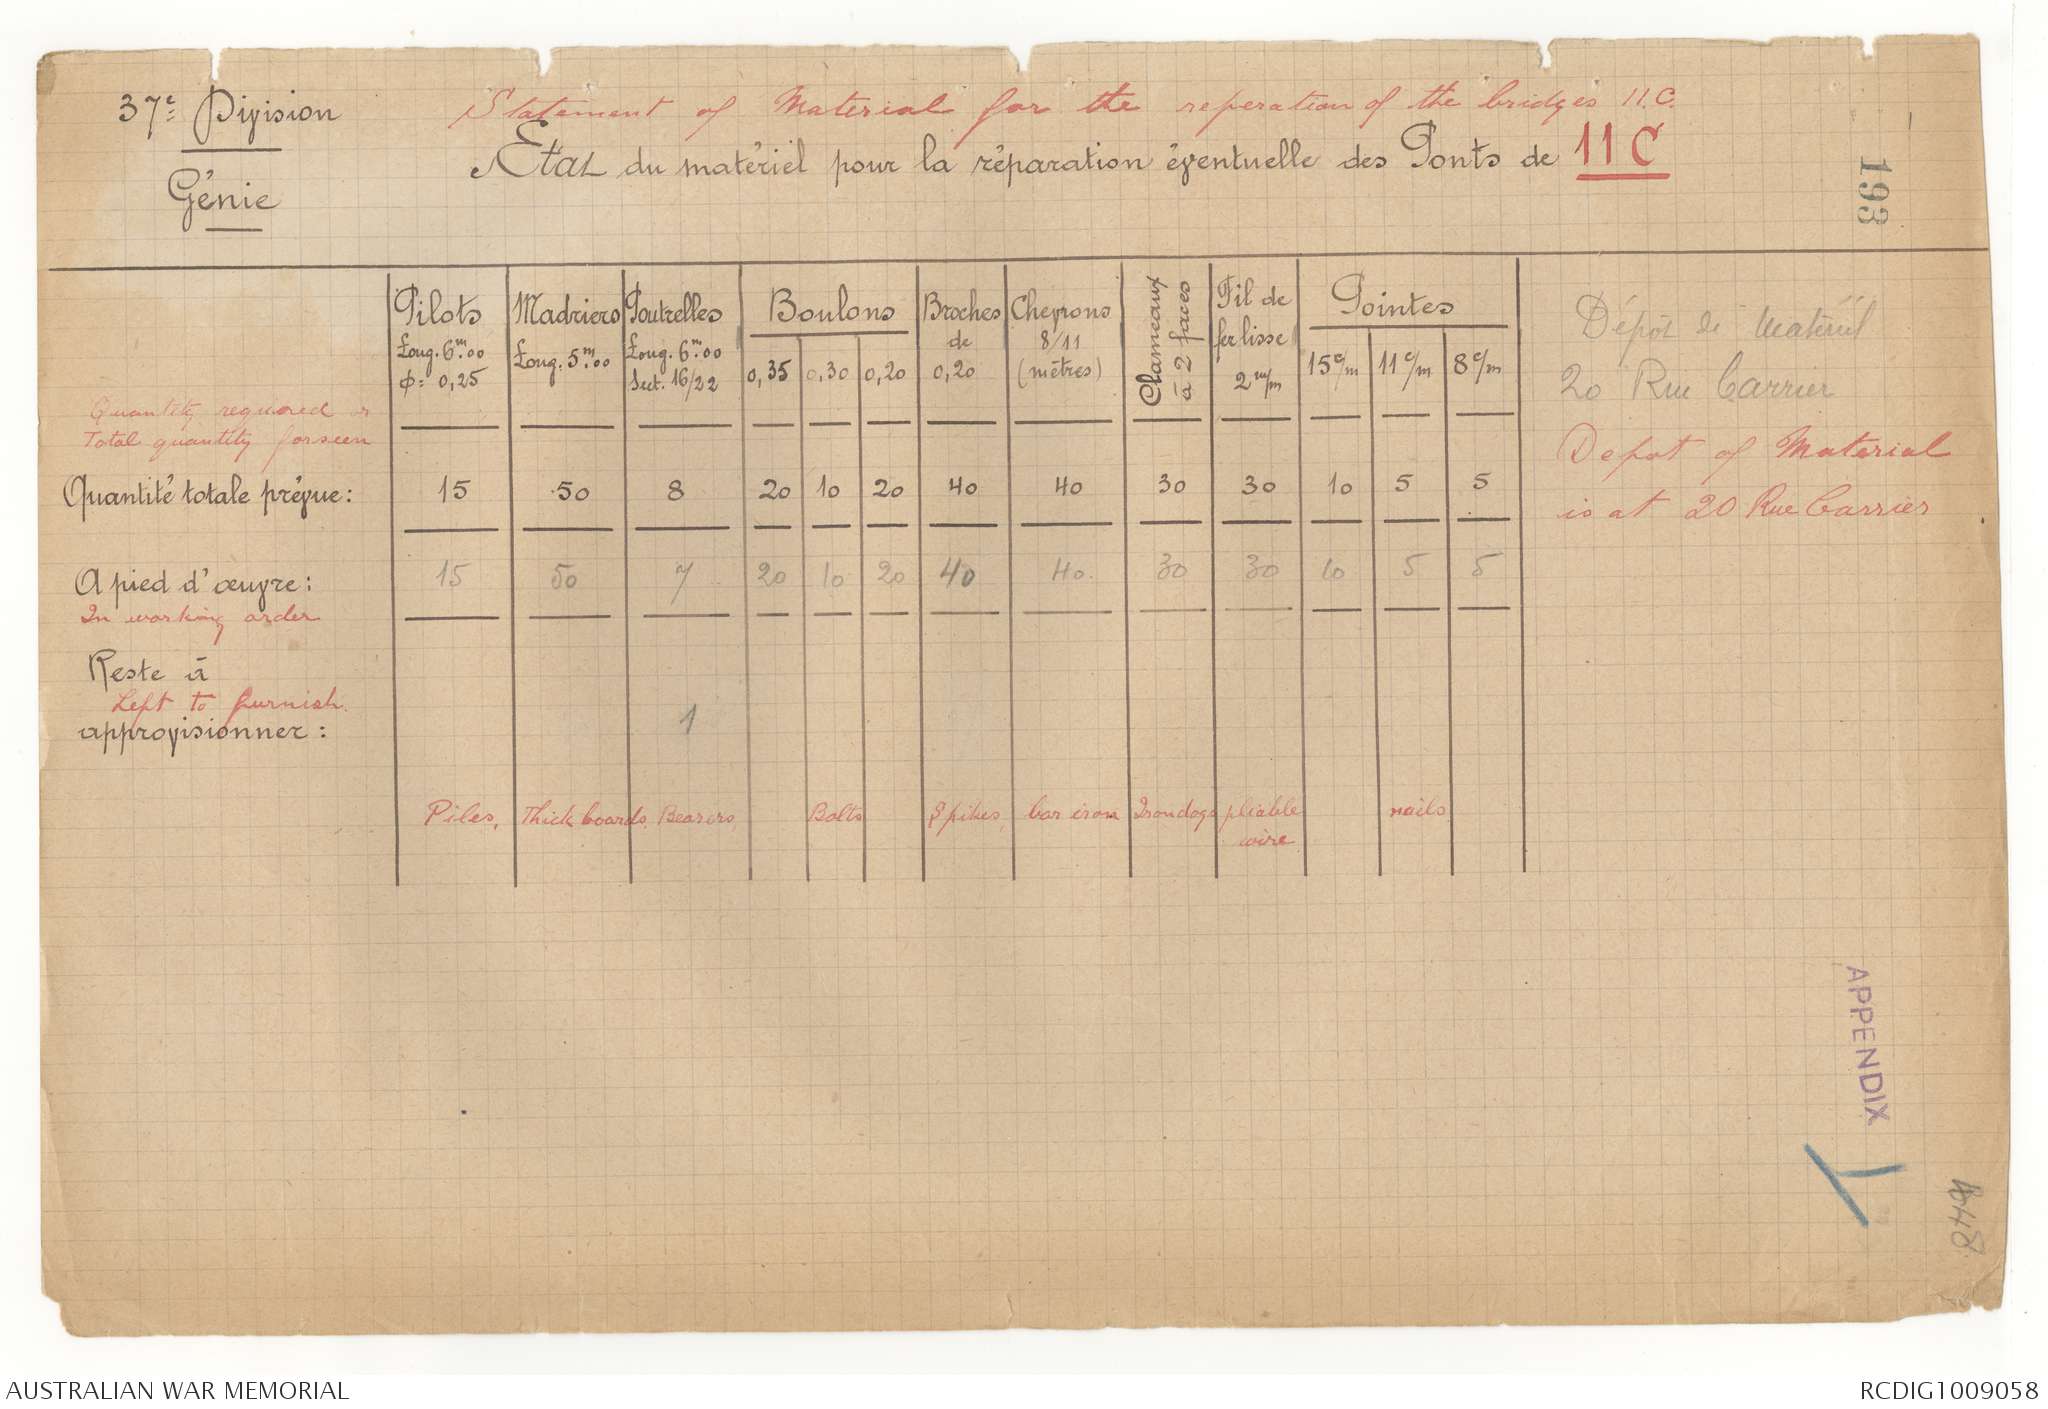 37e Division
Génie
Statement of Material for the reperation of the bridges 11.C.
Etat du matériel pour la réparation éventuelle des Ponts de 11 C
193
Pilots
Long. 6m.00
φ = 0,25
Madriers
Long. 5m.00
Poutrelles
Long. 6m.00
Sect. 16/22
Boulons
0,35 0,30 0,20
Broches
de
0,20
Chevrons
8/11
(mètres)
Clameaux
à 2 faces
Fil de
fer lisse
2m/m
Pointes
15c/m 11c/m 8c/m
Dépôt de Matériel
20 Rue Carrier
Depot of Material
is at 20 Rue Carrier
Quantity required or
Total quantity forseen
Quantité totale prévue: 15 50 8 20 10 20 40 40 30 30 10 5 5
A pied d'œuvre: 15 50 7 20 10 20 40 40. 30 30 10 5 5
In working order
Reste à
Left to furnish.
approvisionner: 1
Piles, Thick boards, Bearers, Bolts Spikes, bar iron Irondogs pliable nails
wire
APPENDIX
Y
AUSTRALIAN WAR MEMORIAL
RCDIG1009058